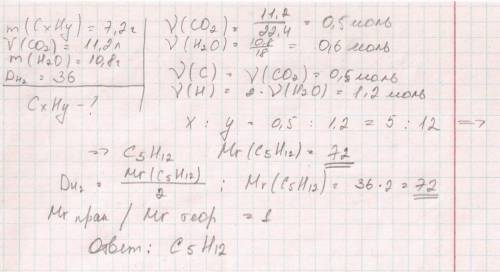 m(CxHy) = 7,2г
V(CO2) = 11,2л
m(H2O) = 10,8г
DH2 = 36
CxHy - ?
ν(CO2) = 11,2/22,4 = 0,5 моль
ν(H2O) = 10,8/18 = 0,6 моль
ν(C) = ν(CO2) = 0,5 моль
ν(H) = 2·ν(H2O) = 1,2 моль
x : y = 0,5 : 1,2 = 5 : 12 =>
=> C5H12 Mr(C5H12) = 72
DH2 = Mr(C5H12)/2 ; Mr(C5H12) = 36·2 = 72
Mr прак / Mr теор = 1
Ответ: C5H12